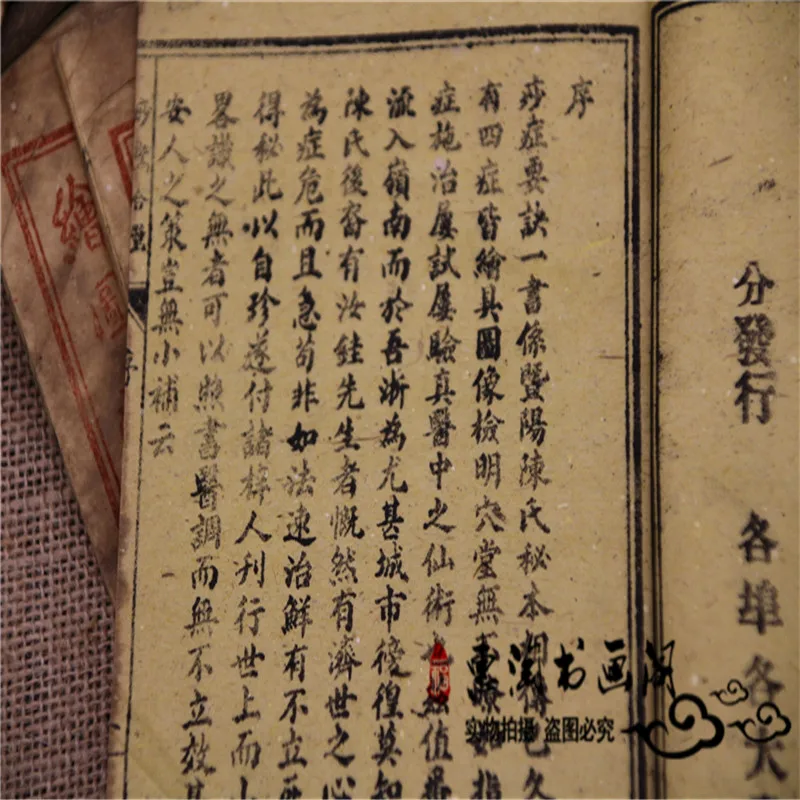 分發行 各埠各大
序
痧症要訣一書係暨陽陳氏秘本
有四症皆繪具圖像檢明穴堂無
症施治屢試屢驗真醫中之仙術
值
流入嶺南而於吾浙為尤甚城市徬徨莫知
陳氏後裔有汝銈先生者慨然有濟世之心
為症危而且急苟非如法速治鮮有不立
得秘此以自珍遂付諸梓人刋行世上而小
畧識之無者可以照書醫調而無不立效其
安人之策豈無小補云
序
繪圖
书画阁
实物拍摄 盗图必究